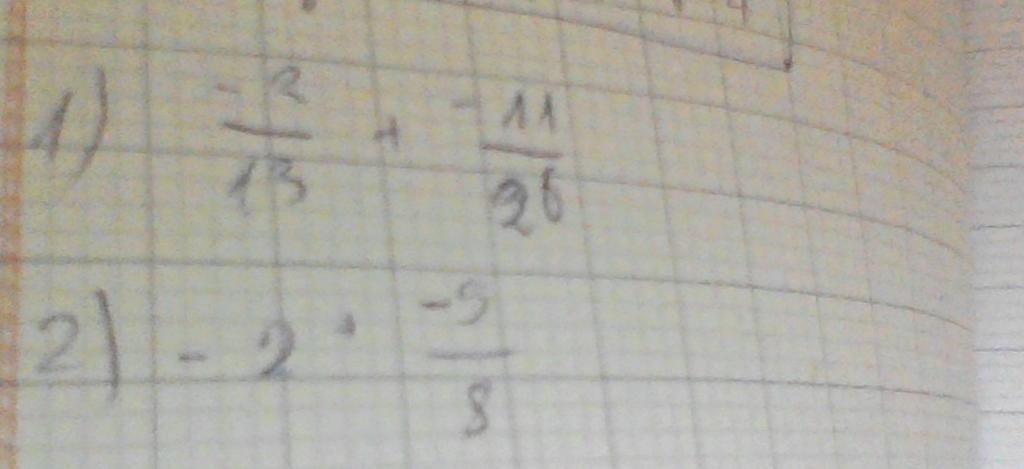 1) -2/13 + -11/26
2) -2 · -5/8